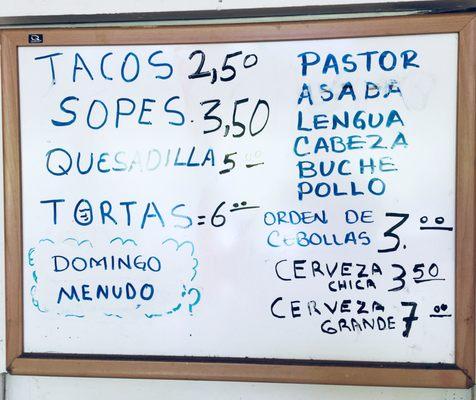 TACOS 2,50
SOPES. 3,50
QUESADILLA 5 00
TORTAS = 6 00
DOMINGO
MENUDO ?
PASTOR
LENGUA
CABEZA
BUCHE
POLLO
ORDEN DE
CEBOLLAS 3. 00
CERVEZA
CHICA 3 50
CERVEZA
GRANDE 7 00